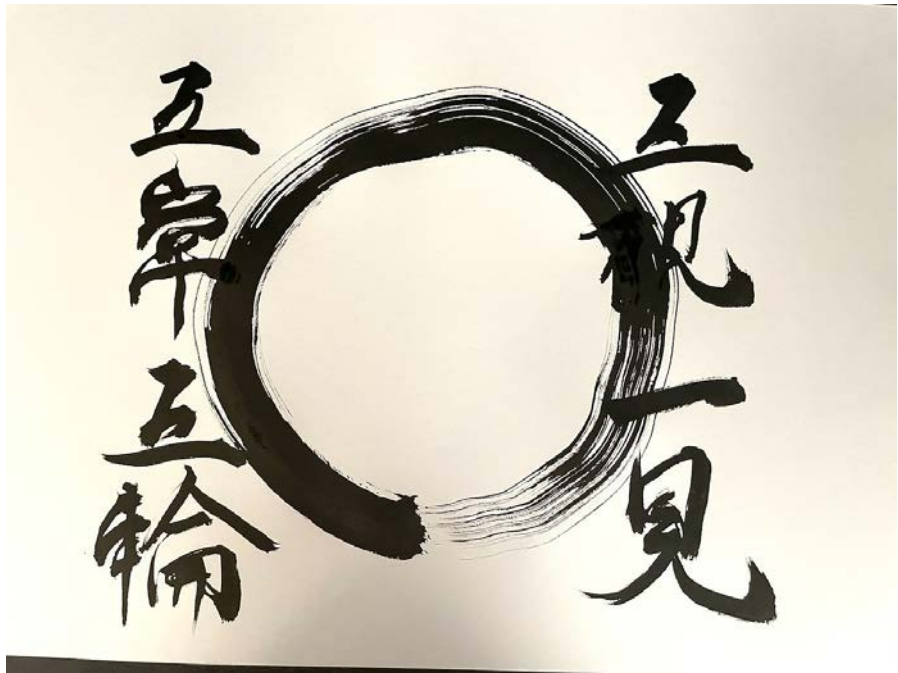 五観一見
五常五輪